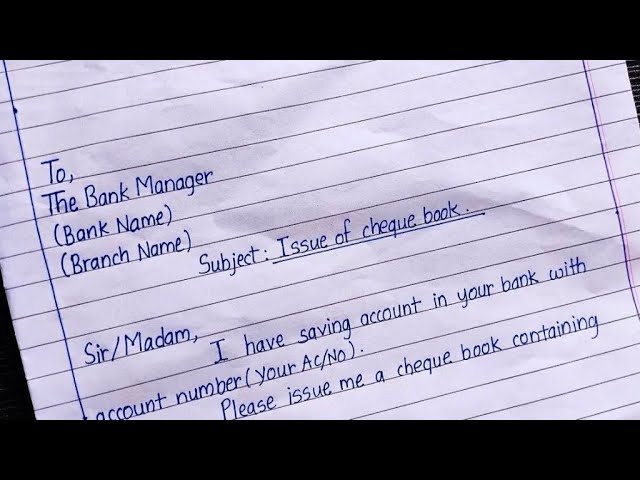 To,
The Bank Manager
(Bank Name)
(Branch Name)
Subject: Issue of cheque book.
Sir/Madam,
I have saving account in your bank with
account number(Your Ac/No).
Please issue me a cheque book containing